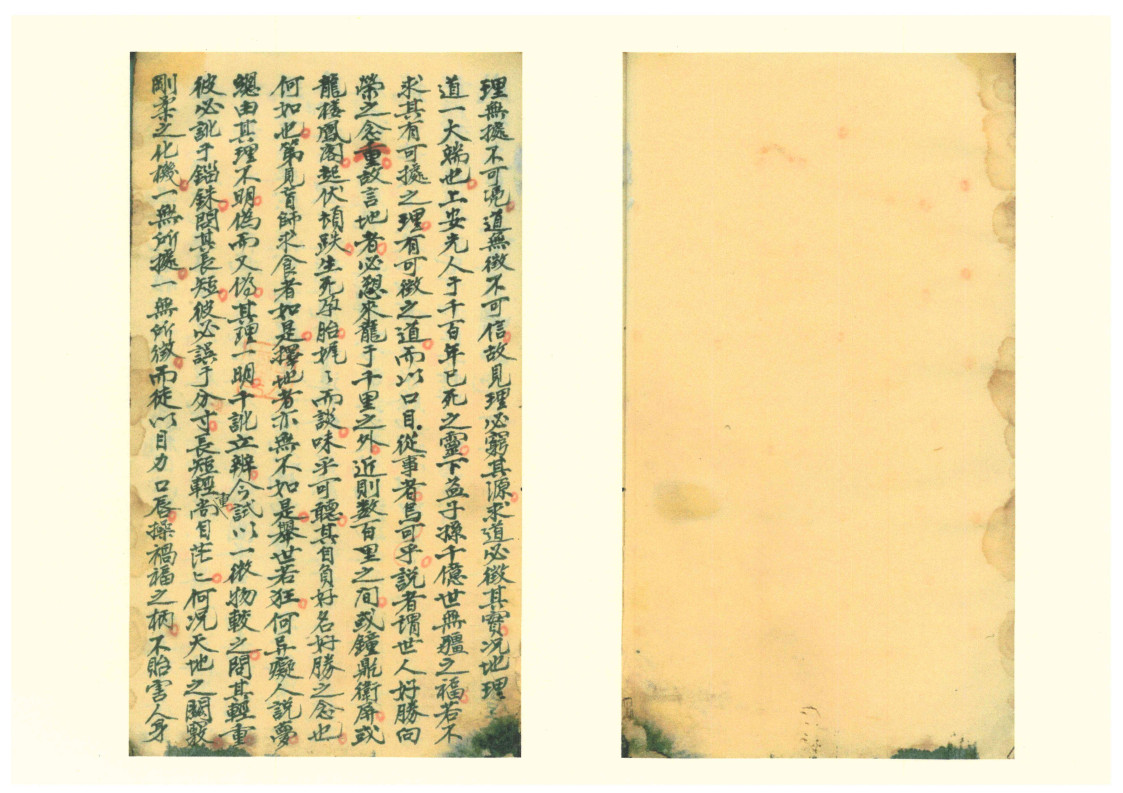 理無據不可憑道無徵不可信故見理必窮其源求道必徵其實况地理
道一大端也上安先人于千百年已死之靈下益子孫千億世無疆之福若不
求其有可據之理有可徵之道而以口目從事者烏可乎説者謂世人好勝向
榮之念重故言地者必想來龍于千里之外近則数百里之间或鐘鼎衛屏或
龍楼鳳阁起伏頓跌生死孕胎娓〻而談味乎可聽其自負好名好勝之念也
何如也第見盲師求食者如是擇地者亦無不如是舉世若狂何异癡人説夢
總由其理不明偽而又偽其理一明千訛立辨今試以一微物較之問其輕重
彼必訛于錙銖問其長短彼必誤于分寸長短輕重尚自茫〻何况天地之關竅
剛柔之化機一無所據一無所徵而徒以目力口唇操禍福之柄不貽害人身